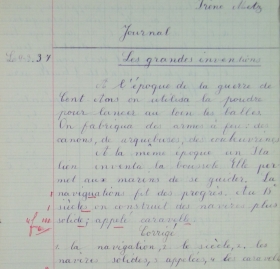 Irène
Journal
Les grandes inventions
A l'époque de la guerre de
Cent Ans on utilisa la poudre
pour lancer au loin les balles.
On fabriqua des armes à feu: des
canons, des arquebuses, des couleuvrines
A la même époque un Ita
lien inventa la boussole. Elle per
met aux marins de se guider. La
naviguation fit des progrès. Au 15
siècle on construit des navires plus
solide; appelé caravelle.
Corrigé
la navigation, le siècle, les
navires solides, appelés, les caravelles